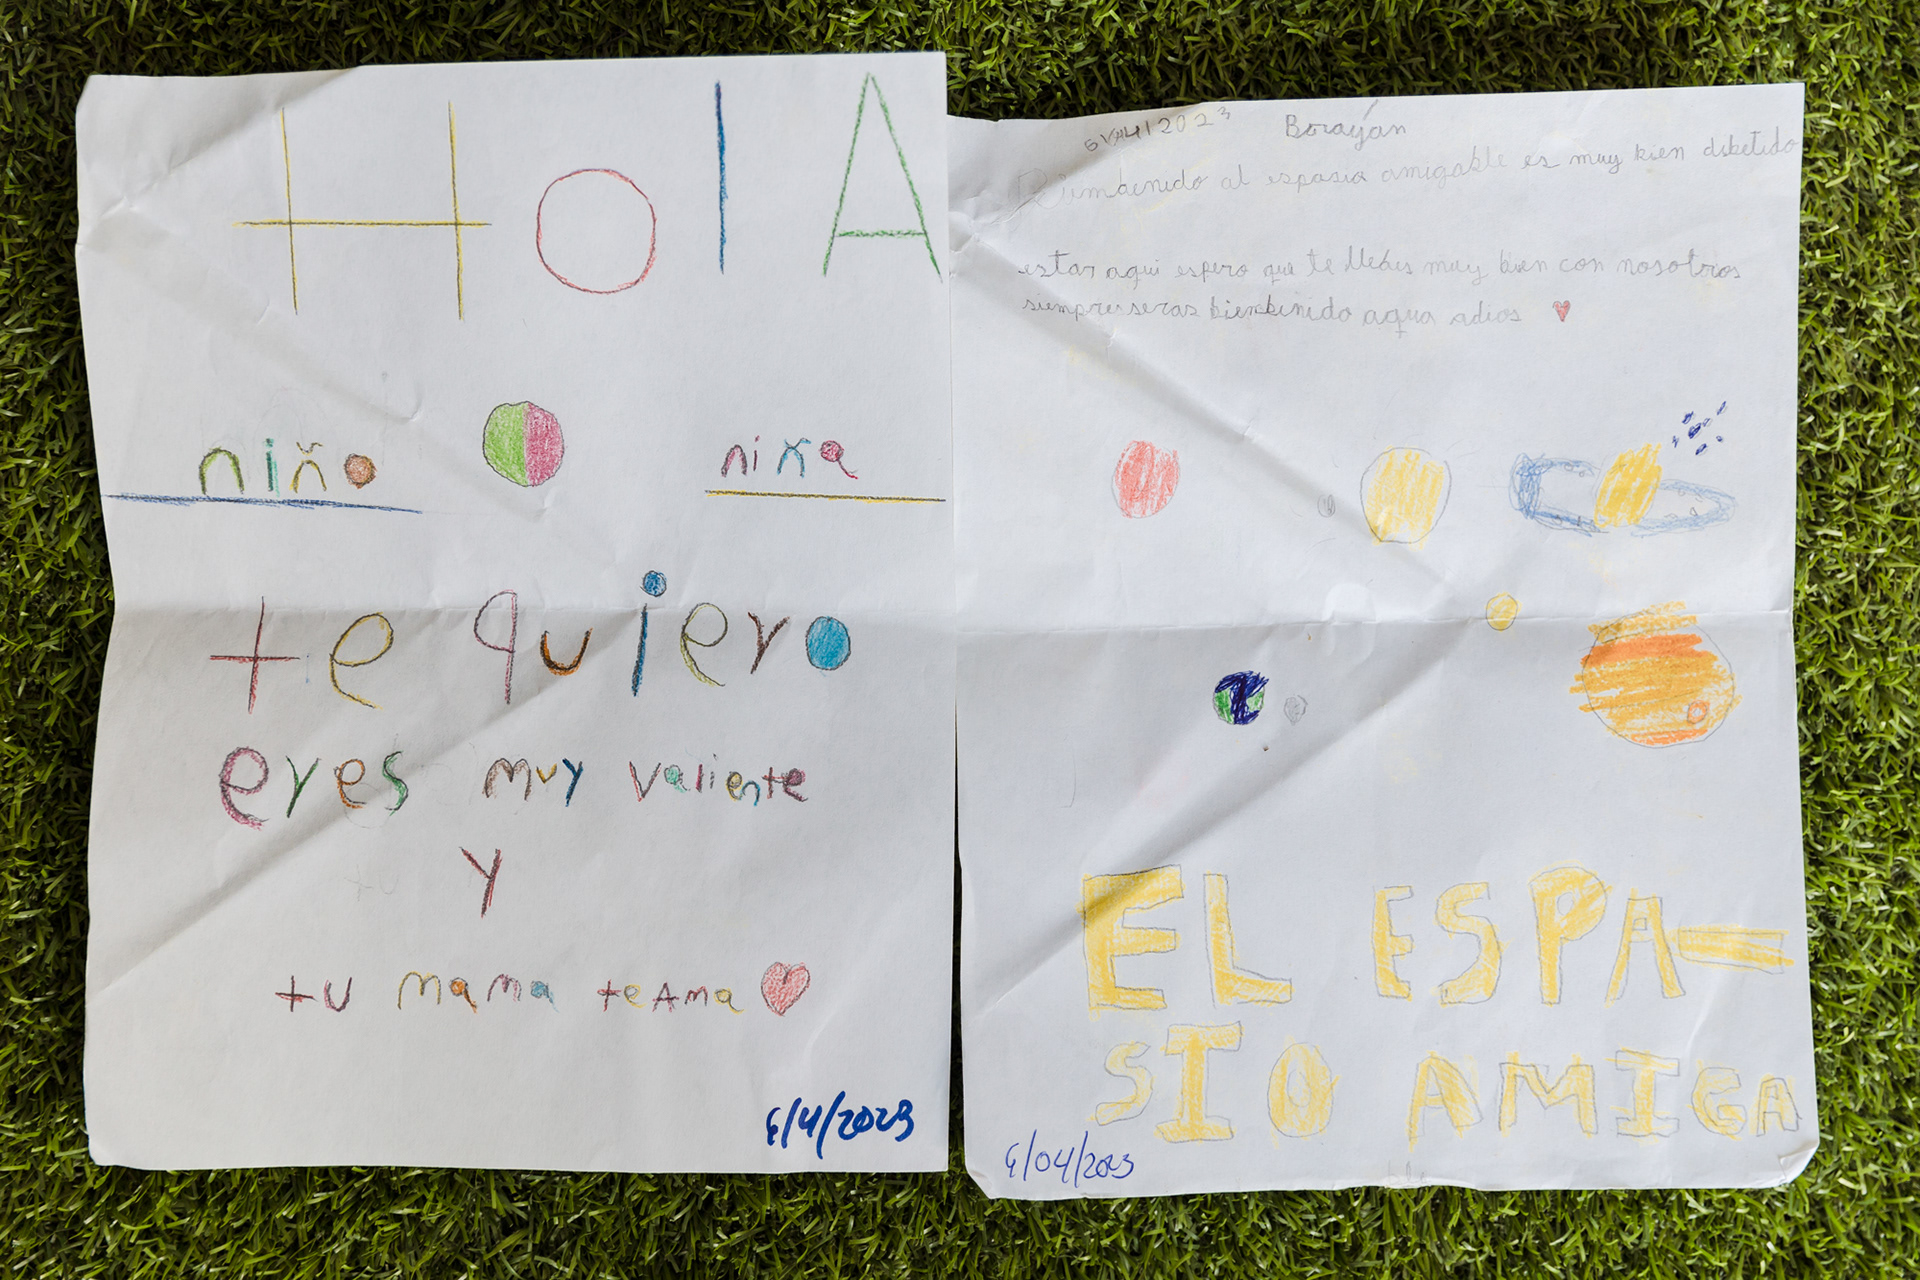 HOlA
niño
niña
te quiero
eres muy valiente
y
tu mama teAma
6/4/2023
Borayán
Biembenido al espasio amigable es muy bien dibetido
estar aqui espero que te llebes muy bien con nosotros
siempre seras biembenido aqua adios
EL ESPA-
SIO AMIGA
ble
6/04/2023